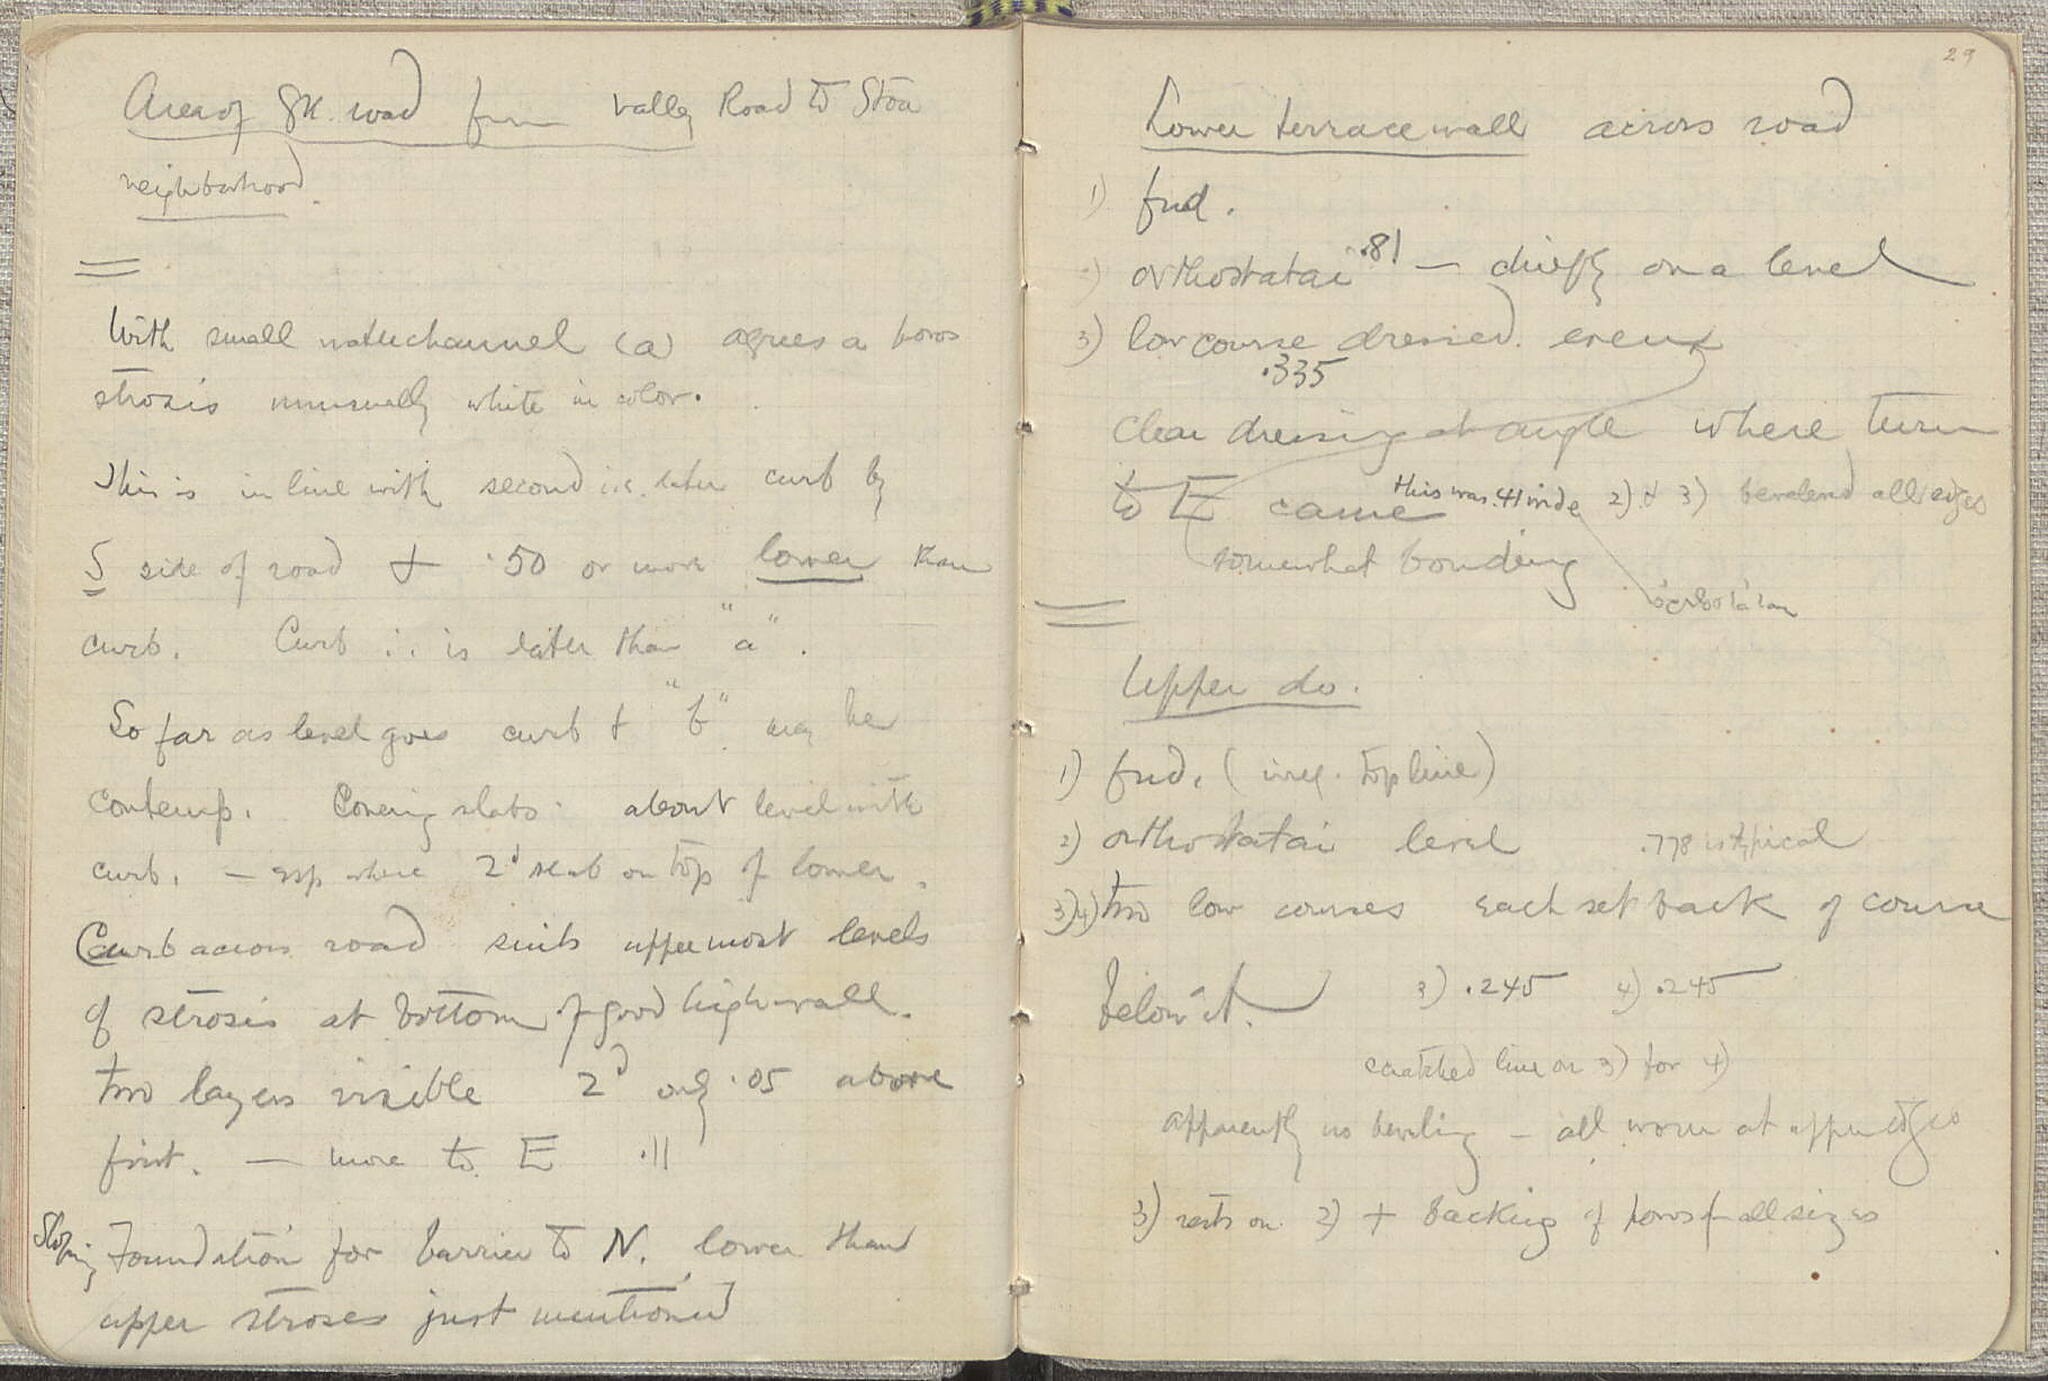 Area of Gk. road from Valley Road to Stoa
neighborhood.
With small waterchannel (a) agrees a poros
strosis unusually white in color.
This is in line with second i.e. later curb by
S side of road + .50 or more lower than
curb. Curb ∴ is later than "a".
So far as level goes curb + "b" may be
contemp. Covering slabs about level with
curb. — esp where 2d slab on top of lower.
Curb across road suits uppermost levels
of strosis at bottom of good high wall.
Two layers visible 2d only .05 above
first. — more to E .11
Sloping Foundation for barrier to N. lower than
upper stroses just mentioned
29
Lower terrace wall across road
1) fnd.
2) orthostatai .81 — chiefly on a level
3) low course dressed.
.335
clear dressing at angle where turn
to E came this was .41 wide 2) + 3) beveled all edges
somewhat bonding
Upper do.
1) fnd. (irreg. top line)
2) orthostatai level .778 is typical
3) 4) two low courses each set back of course
below it. 3) .245 4) .245
scratched line on 3) for 4)
apparently no beveling — all worn at upper edges
3) rests on 2) + backing of poros of all sizes